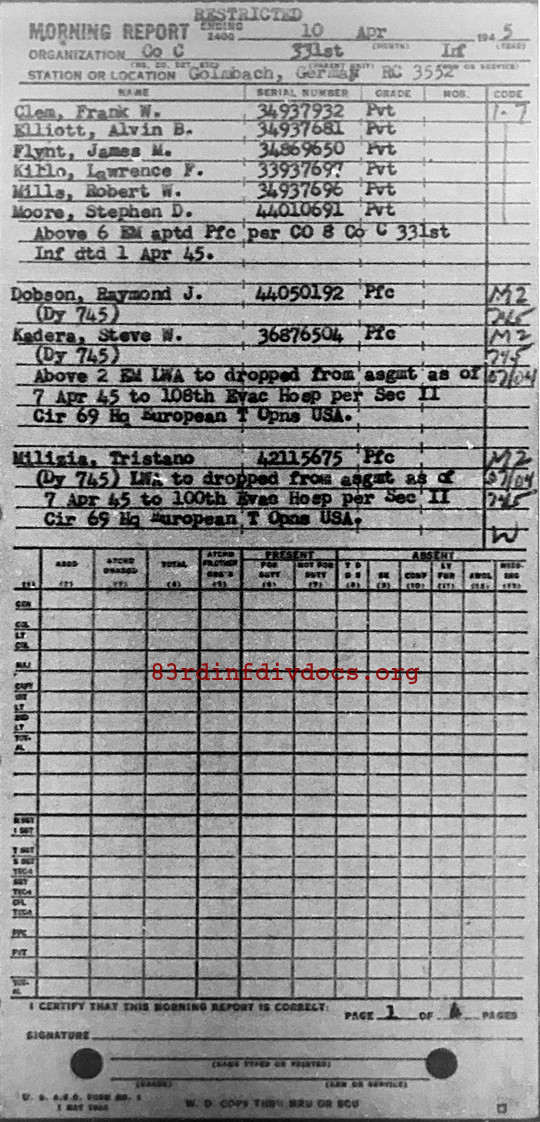 RESTRICTED
MORNING REPORT ENDING 2400 10 Apr 1945
(MONTH) (YEAR)
ORGANIZATION Co C 331st Inf
STATION OR LOCATION Golmbach, German RC 3552
NAME SERIAL NUMBER GRADE MOS. CODE
Clem, Frank W. 34937932 Pvt 1-7
Elliott, Alvin B. 34937681 Pvt
Flynt, James M. 34869650 Pvt
Kihlo, Lawrence F. 33937697 Pvt
Mills, Robert W. 34937696 Pvt
Moore, Stephen D. 44010691 Pvt
Above 6 EM aptd Pfc per CO 8 Co C 331st
Inf dtd 1 Apr 45.
Dobson, Raymond J. 44050192 Pfc M2
(Dy 745) 745
Kadera, Steve W. 36876504 Pfc M2
(Dy 745) 745
Above 2 EM LWA to dropped from asgmt as of 07/04
7 Apr 45 to 108th Evac Hosp per Sec II
Cir 69 Hq European T Opns USA.
Milizia, Tristano 42115675 Pfc M2
(Dy 745) LWA to dropped from asgmt as of 07/04
7 Apr 45 to 100th Evac Hosp per Sec II 745
Cir 69 Hq European T Opns USA.
W
PRESENT ABSENT
ASGD TOTAL FOR DUTY NOT FOR DUTY T D SK CONF AWOL
(2) (4) (5) (6) (7) (8) (9) (10) (11) (12) (13)
GEN
COL
LT COL
MAJ
CAPT
1ST LT
2ND LT
TOT-AL
M SGT
1 SGT
T SGT
S SGT
TEC3
SGT
TEC4
CPL
TEC5
PFC
PVT
TOT-AL
83rdinfdivdocs.org
I CERTIFY THAT THIS MORNING REPORT IS CORRECT:
PAGE 1 OF PAGES
SIGNATURE
(NAME TYPED OR PRINTED)
(GRADE) (ARM OR SERVICE)
W. D. COPY THRU MRU OR SCU